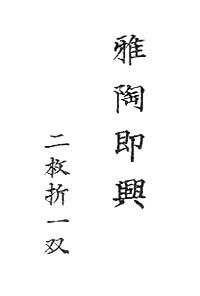 雅陶即興
二枚折一双